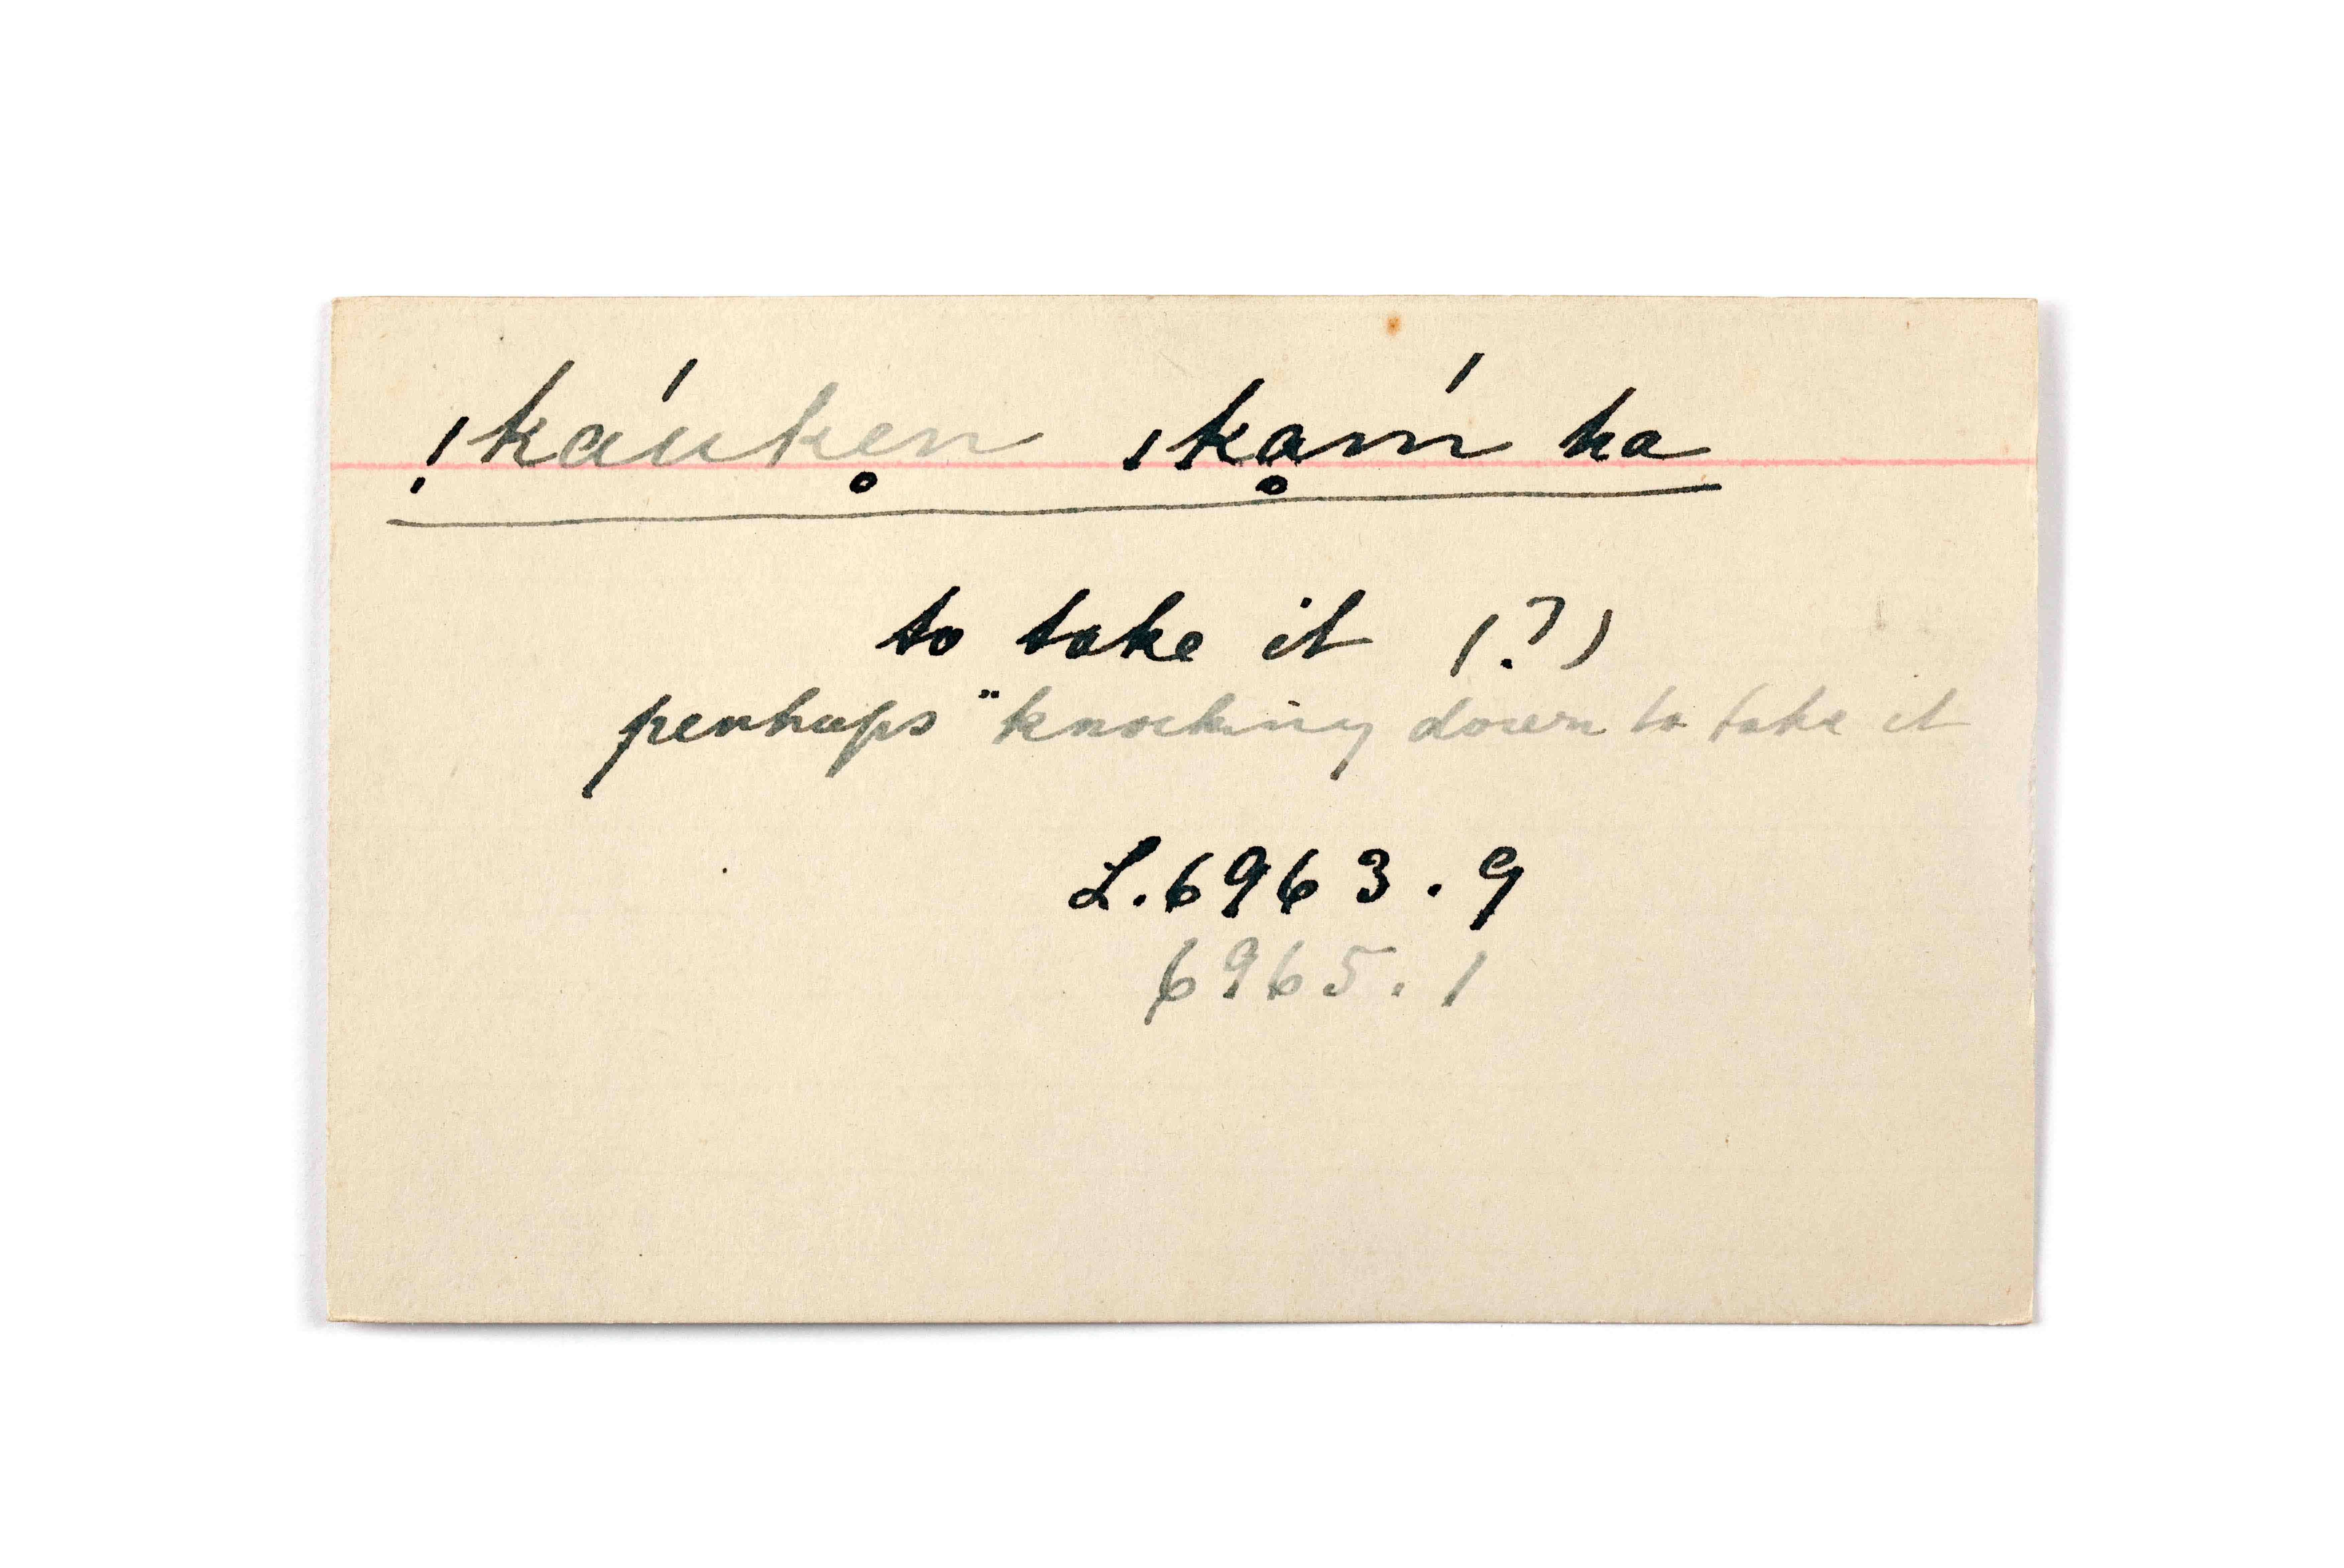 !káuk̥en ıkḁḿ ha
to take it (?)
perhaps "knocking down to take it
L.6963.9
6965.1